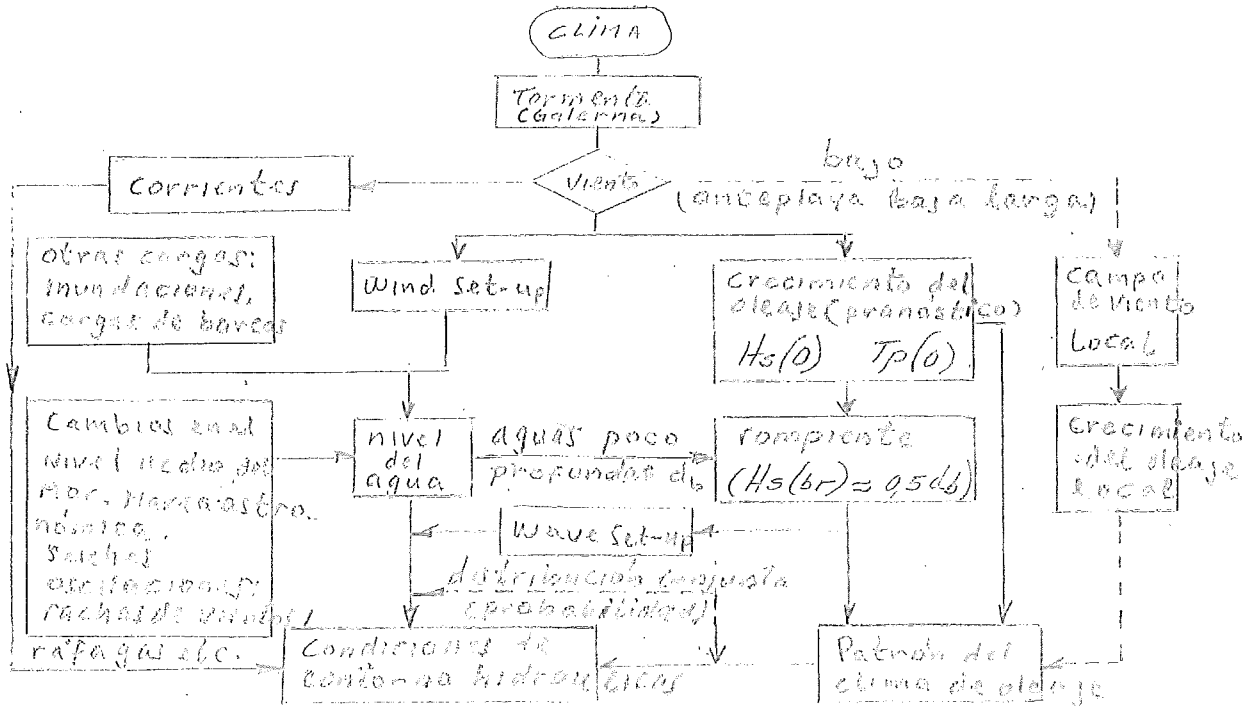 CLIMA
Tormenta
(Galerna)
viento
bajo
(anteplaya baja larga)
Corrientes
otras cargas:
inundaciones,
cargas de barcos
Wind Set-up
Crecimiento del
oleaje (pronóstico)
Hs(0) Tp(0)
Campo
de viento
Local
Cambios en el
Nivel Medio del
Mar. Marea astro-
nómica.
Seiches
oscilaciones:
rachas de vientos,
ráfagas etc.
nivel
del
agua
aguas poco
profundas db
rompiente
(Hs(br) ≈ 0,5db)
Crecimiento
del oleaje
local
Wave Set-up
distribución conjunta
(probabilidad)
Condiciones de
contorno hidráulicas
Patrón del
clima de oleaje